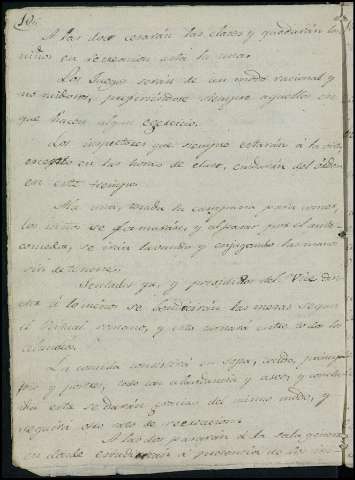 10.
A las doce cesarán las clases y quedarán los
niños en recreacion asta la una.
Los Juegos serán de un modo racional y
no ruidoso, prefiriéndose siempre aquellos en
que hacen algun egercicio.
Los inspectores que siempre estarán á la vista
excepto en las horas de clase, cuidarán del órden
en este tiempo.
A la una, tocada la campana para comer,
los niños se formarán, y al pasar por el ante
comedor, se irán lavando y enjugando las manos
sin detenerse.
Sentados ya, y presididos del Vice
á lo menos se bendicirán las mesas segun
el Ritual romano, y esta turnará entre todos los
alumnos.
La comida consistirá en sopa, cocido, princi
pio y postres, todo con abundancia y aseo, y conclu
ida esta se darán gracias del mismo modo, y
seguirá otro rato de recreacion.
A las dos pasarán á la sala general
en donde estudiarán á presencia de los ins